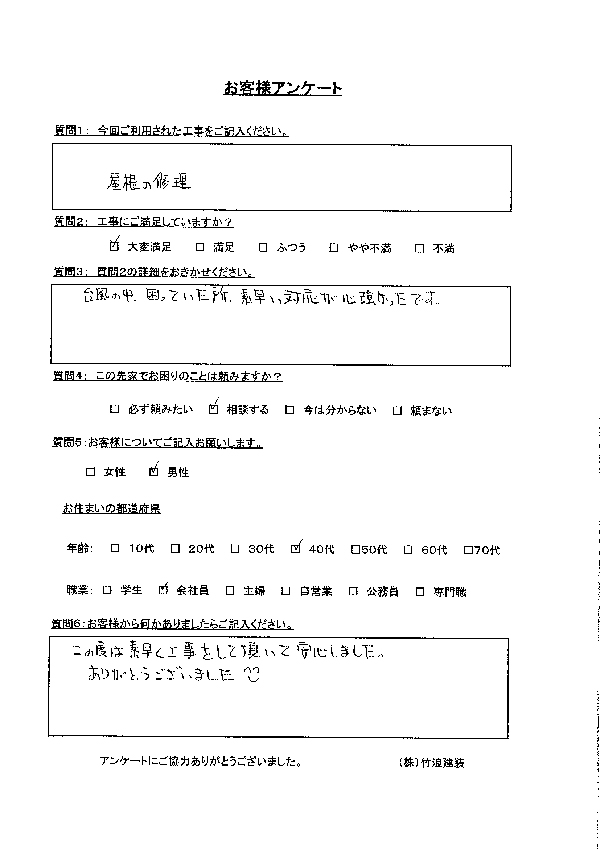 お客様アンケート
質問1： 今回ご利用された工事をご記入ください。
屋根の修理
質問2： 工事にご満足していますか？
☑ 大変満足 □ 満足 □ ふつう □ やや不満 □ 不満
質問3： 質問2の詳細をおきかせください。
台風の中、困っていた所、素早い対応が心強かったです。
質問4： この先家でお困りのことは頼みますか？
□ 必ず頼みたい ☑ 相談する □ 今は分からない □ 頼まない
質問5：お客様についてご記入お願いします。
□ 女性 ☑ 男性
お住まいの都道府県
年齢： □ 10代 □ 20代 □ 30代 ☑ 40代 □50代 □ 60代 □70代
職業： □ 学生 ☑ 会社員 □ 主婦 □ 自営業 □ 公務員 □ 専門職
質問6：お客様から何かありましたらご記入ください。
この度は素早く工事をして頂いて安心しました。
ありがとうございました
アンケートにご協力ありがとうございました。 （株）竹浪建装